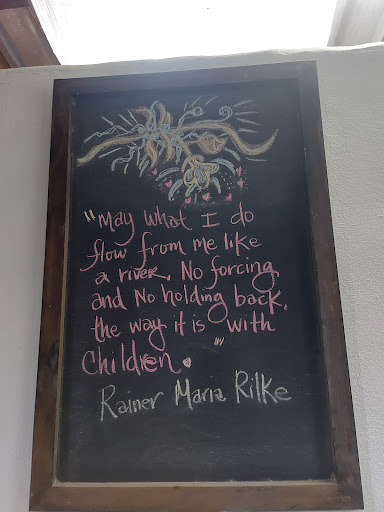 "May what I do
flow from me like
a river, No forcing
and No holding back,
the way it is with
Children."
Rainer Maria Rilke